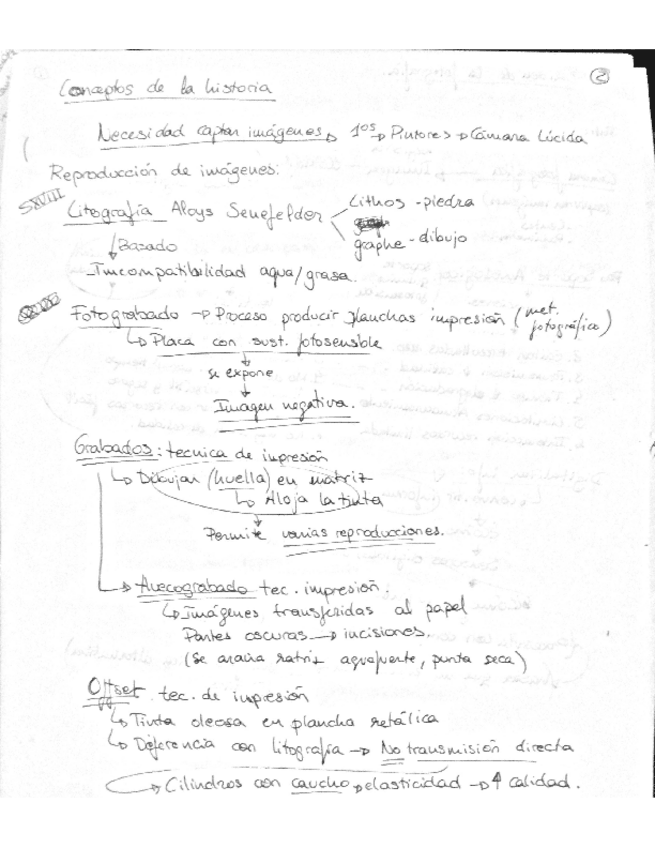 2
Conceptos de la historia
Necesidad captar imágenes → 1os → Pintores → Cámara Lúcida
Reproducción de imágenes:
SXVIII
Litografía Aloys Senefelder
Lithos - piedra
graphe - dibujo
↓ Basado
Imcompatibilidad agua/grasa.
Fotograbado → Proceso producir planchas impresión (met. fotográfico)
↳ Placa con sust. fotosensible
↓
se expone
↓
Imagen negativa.
Grabados: tecnica de impresión
↳ Dibujar (huella) en matriz
↳ Aloja la tinta
↓
Permite varias reproducciones.
→ Huecograbado tec. impresión.
↳ Imágenes transferidas al papel
Partes oscuras → incisiones.
(Se araña matriz aguafuerte, punta seca)
Offset tec. de impresión
↳ Tinta oleosa en plancha metálica
↳ Diferencia con litografía → No transmisión directa
→ Cilindros con caucho → elasticidad → ↑ calidad.